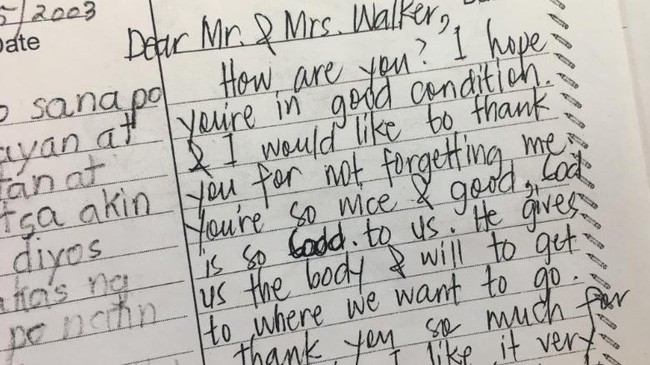 5/2003
ate
Dear Mr. & Mrs. Walker,
How are you? I hope
you're in good condition.
& I would like to thank
you for not forgetting me.
You're so nice & good, God
is so Godd. to us. He gives
us the body & will to get
to where we want to go.
thank you so much for
I like it very
o sana po
ayan at
tan at
tsa akin
diyos
has ng
po natin